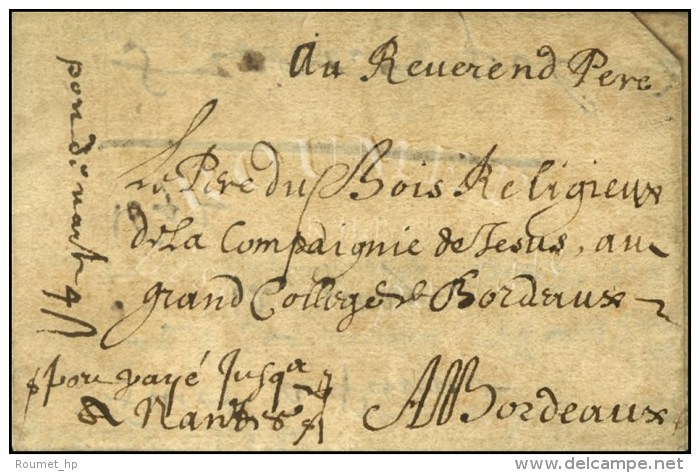 Au Reverend Pere
Le Pere du Bois Religieux
de La Compaignie de Jesus, au
grand College de Bordeaux
A Bordeaux
port payé Jusq
a Nantes
Roumet_hp
delcampe.net